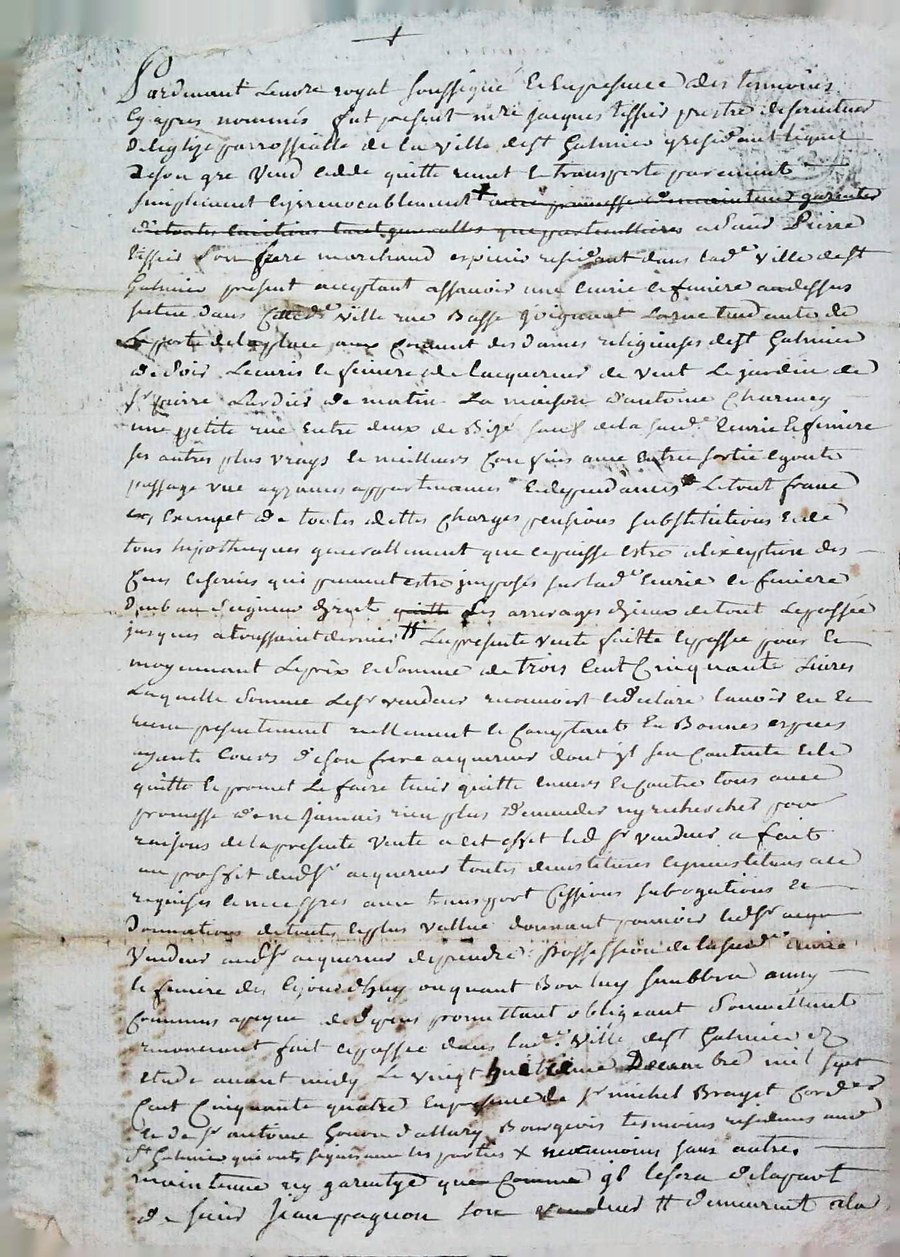 Pardevant Le notre royal soussigné Et En presence des temoins
Cy apres nommés fut present mre jacques tissier prestre desserviteur
De leglize parrossialle de la ville de st Galmier y residant lequel
De son gre Vend cedde quitte remet Et transporte purement
simplement Et jrrevocablement + avec promesse de maintenir garentir
De toutes Evictions tant generalles que particullieres a sieur Pierre
tissier son frere marchand epicier residant dans lad.e ville de st
Galmier present acceptant assavoir une Ecurie Et feniere au dessus
scitue dans Cette d.e ville rue Basse joignant La rue tendante de
La porte de la place aux Couvent des dames religieuses de st Galmier
de soir Lecurie Et feniere de lacquereur de vent Le jardin de
sr pierre de matin La maison d'antoine Charney
une petite rue Entre deux de Bize sauf de la susd.e Ecurie Et feniere
ses autres plus vrays Et meilleurs Confins avec Entrée sortie Egouts
passage vue ayzances appartenances Et dependances Le tout franc
Et Exempt de toutes dettes Charges pensions substitutions Et de
tous hypotheques generallement que ce puisse Estre a lexception des
Cens Et servis qui peuvent estre jmposés sur lad.e Ecurie Et feniere
Deub au seigneur direct quitte des arrerages diceux de tout Le passée
jusques a toussaint dernier # La presente vente faitte Et passée pour Et
moyennant Le prix Et somme de trois Cent Cinquante Livres
Laquelle somme Led sr vendeur reconnoist Et declare Lavoir Eu Et
receu presentement reellement Et Comptant En Bonnes especes
ayants Cours de son frere acquereur dont jl sen Contente Et Le
quitte Et promet Le faire tenir quitte Envers Et Contre tous avec
promesse de ne jamais rien plus demander ny rechercher pour
raisons de la presente vente a Cet effet led sr vendeur a fait
au proffit dud sr acquereur toutes demistitures Et jnvestitures a ce
requises Et necessres avec transport Cessions subrogations Et
Donnations de toute Et plus vallue donnant pouvoir led sr
Vendeur aud sr acquereur de prendre Possession de la susd.e Ecurie
Et feniere des Cejourdhuy ou quant Bon luy semblera ainsy
Convenus a peyne de depens promettant obligeant soumettant
renonceant fait Et passée dans lad.e ville de st Galmier Et
Etude avant midy Le vingt huitieme Decembre mil sept
Cent Cinquante quatre En presence de sr michel Brayet Cord.er
Et de sr antoine Bourgeois tesmoins residens aud
st Galmier qui ont signés avec les parties X neanmoins sans autres
maintenue ny garentye que Comme jl Le sera de la part
de sieur Jean paquon son vendeur # demeurant a la